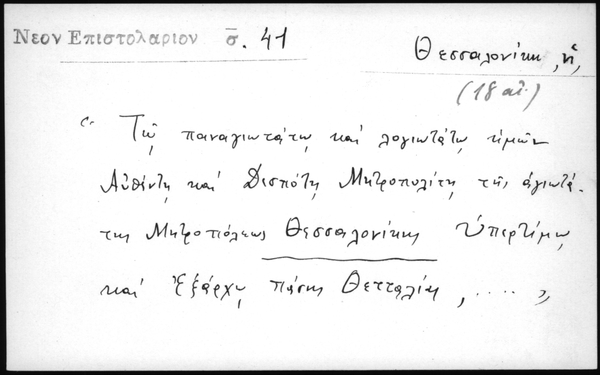 Νεον Επιστολαριον σ. 41
Θεσσαλονίκη, ἡ,
(18 αἰ.)
“ Τῷ παναγιωτάτῳ καὶ λογιωτάτῳ ἡμῶν
Αὐθέντῃ καὶ Δεσπότῃ Μητροπολίτῃ τῆς ἁγιωτά-
της Μητροπόλεως Θεσσαλονίκης Ὑπερτίμῳ
καὶ Ἐξάρχῳ πάσης Θετταλίας, .... ”,